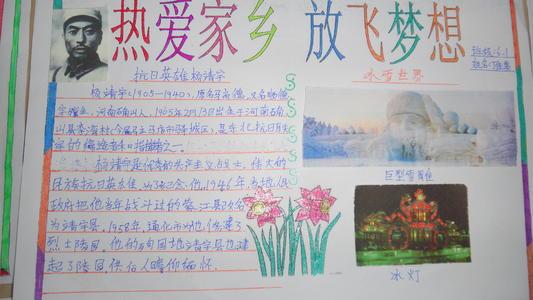 热爱家乡 放飞梦想
班级:6.1
姓名:
抗日英雄杨靖宇
杨靖宇(1905-1940),原名马尚德,
河南确山人,1905年2月13日出生于河南确
山县李湾村(今属驻马店市驿城区),是东北抗日联
军的 和指挥之一。
杨靖宇是优秀的共产主义战士,伟大的
民族抗日英雄,1946年,当地人民
政府把他当年战斗过的濛江县改名
为靖宇县,1958年,通化市
烈士陵园,他的 靖宇县也建
起了陵园供后人瞻仰缅怀。
冰雪世界
巨型雪雕
冰灯